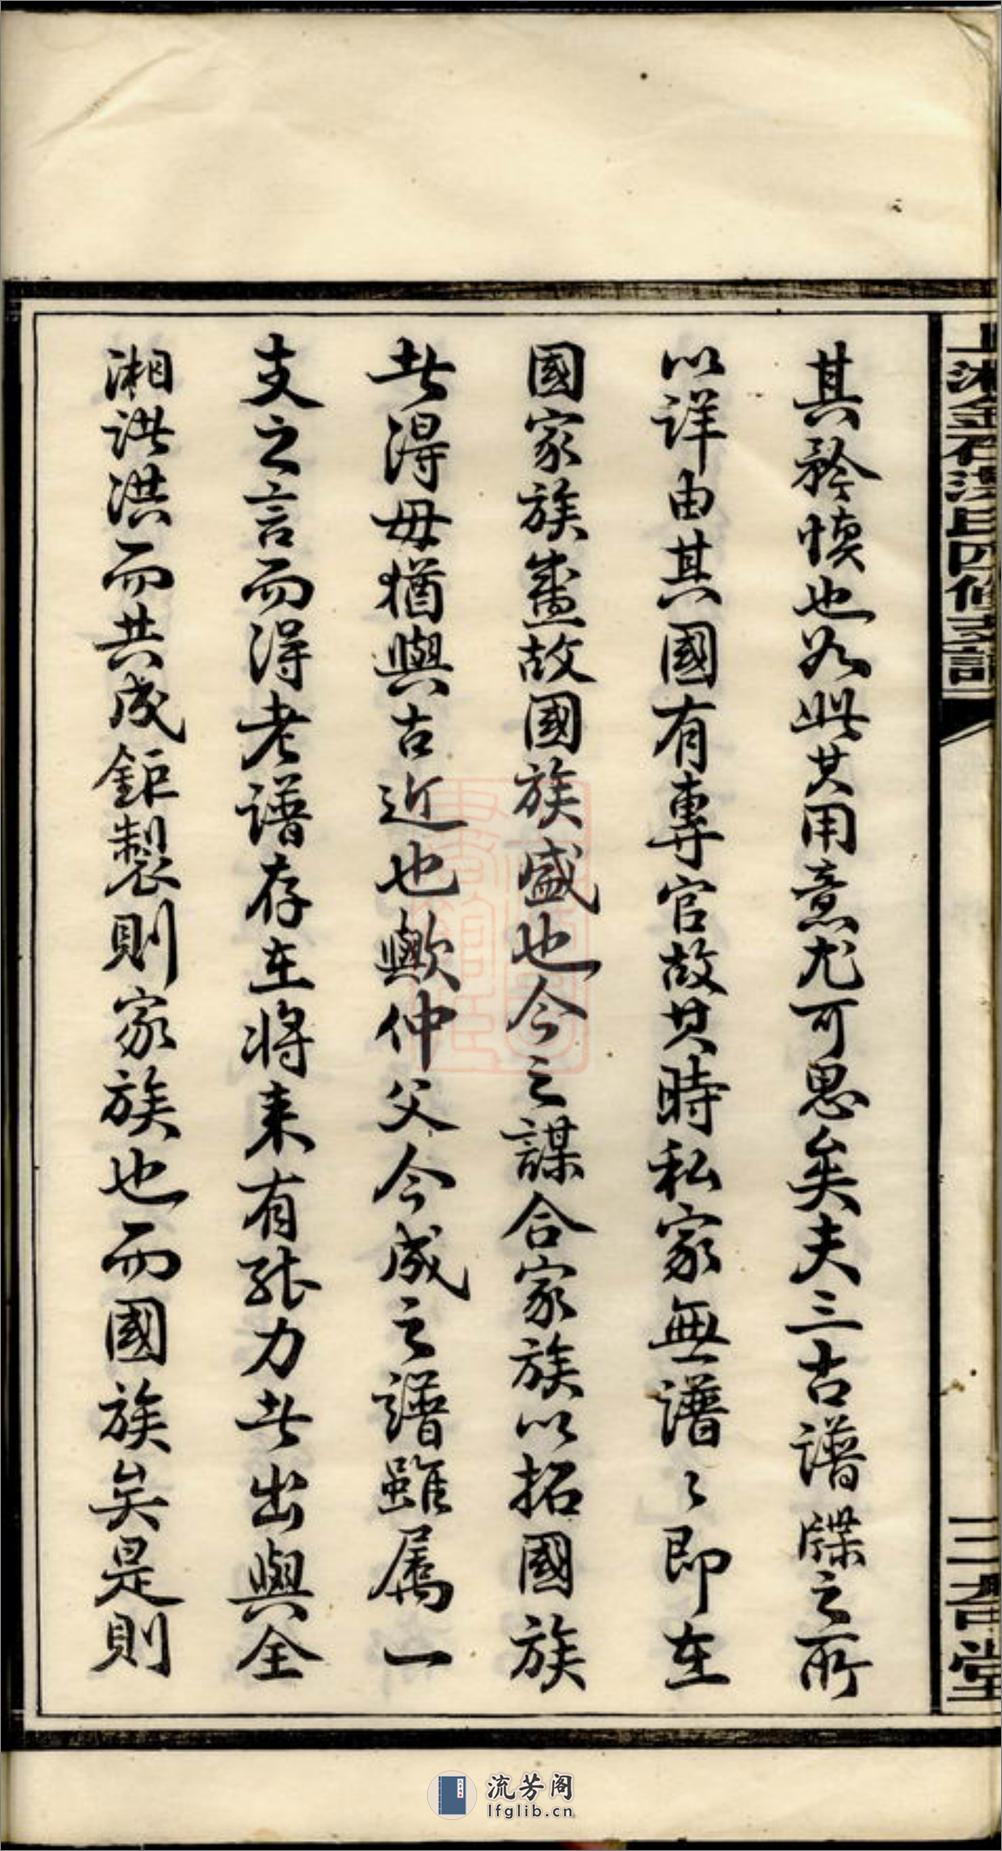 其矜慎也如此其用意尤可思矣夫三古譜牒之所
以詳由其國有專官故其時私家無譜〻即在
國家族盡故國族盛也今之謀合家族以拓國族
者得毋猶與古近也歟仲父今成之譜雖属一
支之言而得老譜存在將来有張力者出與全
湘諸洪而共成鉅製則家族也而國族矣是則
上湘金石洪氏四修支譜
三召堂
流芳阁
lfglib.cn